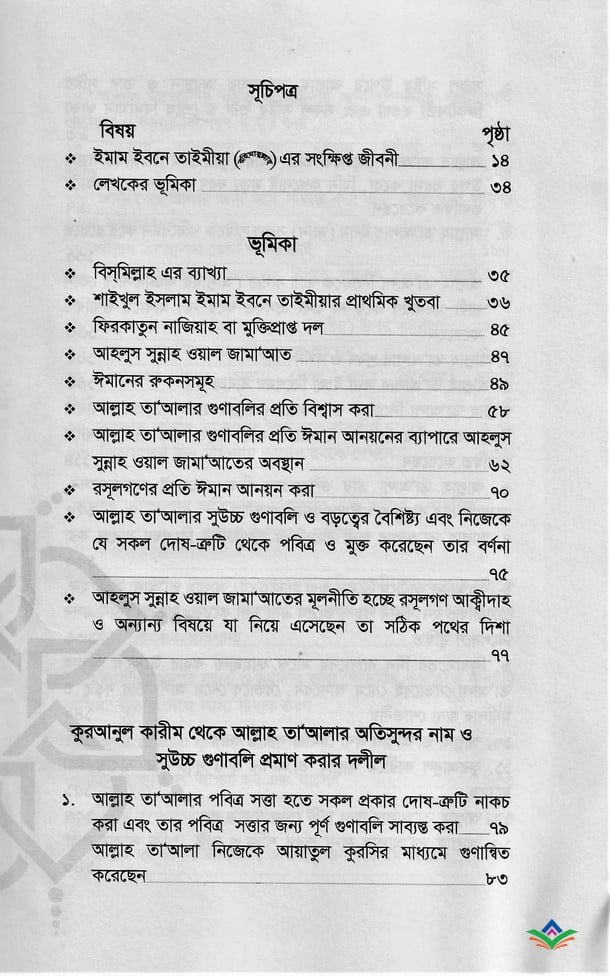 সূচিপত্র
বিষয় পৃষ্ঠা
❖ ইমাম ইবনে তাইমীয়া () এর সংক্ষিপ্ত জীবনী ১৪
❖ লেখকের ভূমিকা ৩৪
ভূমিকা
❖ বিস্‌মিল্লাহ এর ব্যাখ্যা ৩৫
❖ শাইখুল ইসলাম ইমাম ইবনে তাইমীয়ার প্রাথমিক খুতবা ৩৬
❖ ফিরকাতুন নাজিয়াহ বা মুক্তিপ্রাপ্ত দল ৪৫
❖ আহলুস সুন্নাহ ওয়াল জামা‘আত ৪৭
❖ ঈমানের রুকনসমূহ ৪৯
❖ আল্লাহ তা‘আলার গুণাবলির প্রতি বিশ্বাস করা ৫৮
❖ আল্লাহ তা‘আলার গুণাবলির প্রতি ঈমান আনয়নের ব্যাপারে আহলুস
সুন্নাহ ওয়াল জামা‘আতের অবস্থান ৬২
❖ রসূলগণের প্রতি ঈমান আনয়ন করা ৭০
❖ আল্লাহ তা‘আলার সুউচ্চ গুণাবলি ও বড়ত্বের বৈশিষ্ট্য এবং নিজেকে
যে সকল দোষ-ত্রুটি থেকে পবিত্র ও মুক্ত করেছেন তার বর্ণনা
৭৫
❖ আহলুস সুন্নাহ ওয়াল জামা‘আতের মূলনীতি হচ্ছে রসূলগণ আক্বীদাহ
ও অন্যান্য বিষয়ে যা নিয়ে এসেছেন তা সঠিক পথের দিশা
৭৭
কুরআনুল কারীম থেকে আল্লাহ তা‘আলার অতিসুন্দর নাম ও
সুউচ্চ গুণাবলি প্রমাণ করার দলীল
১. আল্লাহ তা‘আলার পবিত্র সত্তা হতে সকল প্রকার দোষ-ত্রুটি নাকচ
করা এবং তার পবিত্র সত্তার জন্য পূর্ণ গুণাবলি সাব্যস্ত করা ৭৯
আল্লাহ তা‘আলা নিজেকে আয়াতুল কুরসির মাধ্যমে গুণান্বিত
করেছেন ৮৩